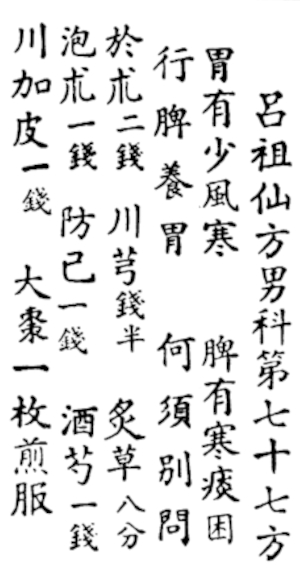 呂祖仙方男科第七十七方
胃有少風寒 脾有寒痰困
行脾養胃 何須別問
於朮二錢 川芎錢半 炙草八分
泡朮一錢 防己一錢 酒芍一錢
川加皮一錢 大棗一枚煎服